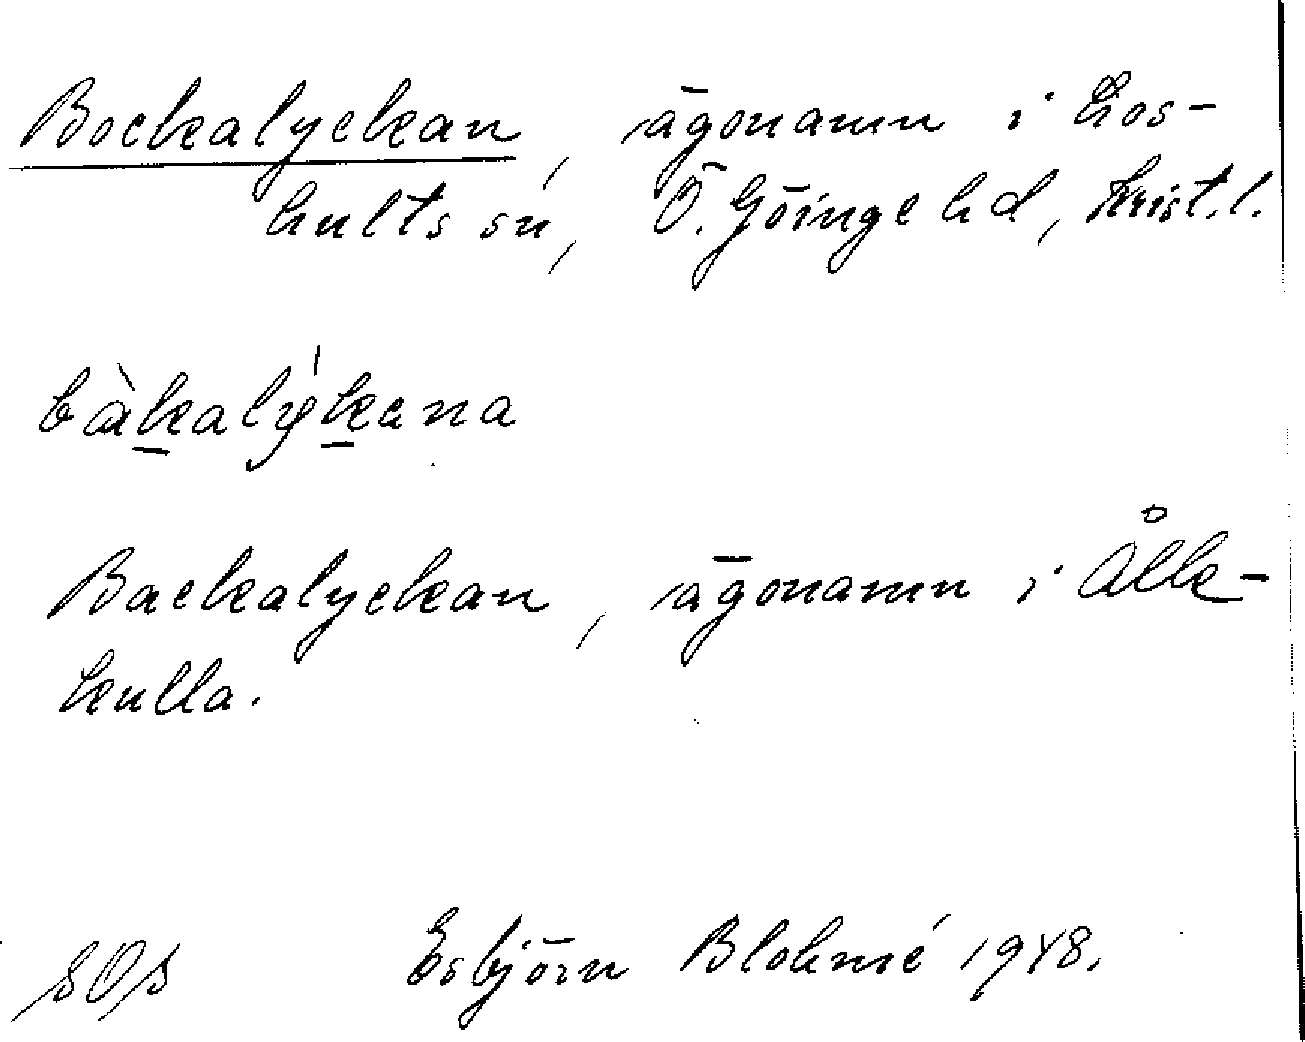 Bockalyckan, ägonamn i Los-
hults sn, Ö. Göinge hd, Krist.l.
bàkalýkana
Backalyckan, ägonamn i Ålle-
kulla.
SOS Esbjörn Blohmé 1948.